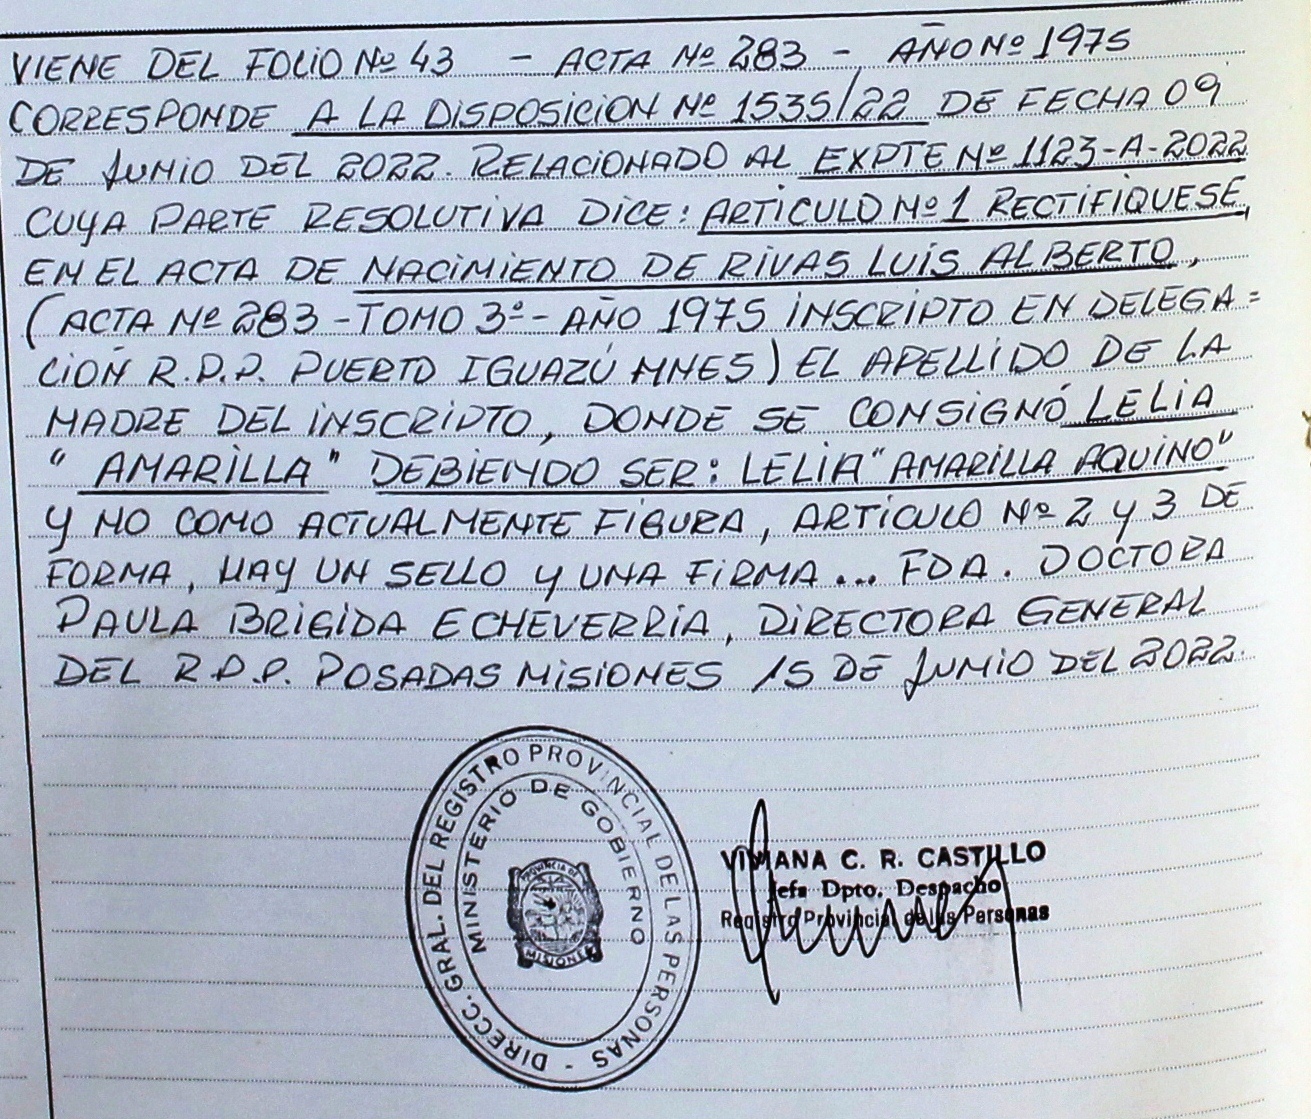 VIENE DEL FOLIO Nº 43 - ACTA Nº 283 - AÑO Nº 1975
CORRESPONDE A LA DISPOSICION Nº 1535/22 DE FECHA 09
DE JUNIO DEL 2022. RELACIONADO AL EXPTE Nº 1123-A-2022
CUYA PARTE RESOLUTIVA DICE: ARTICULO Nº 1 RECTIFIQUESE,
EN EL ACTA DE NACIMIENTO DE RIVAS LUIS ALBERTO,
(ACTA Nº 283 - TOMO 3º - AÑO 1975 INSCRIPTO EN DELEGA=
CIÓN R.P.P. PUERTO IGUAZÚ MNES) EL APELLIDO DE LA
MADRE DEL INSCRIPTO, DONDE SE CONSIGNÓ LELIA
"AMARILLA" DEBIENDO SER: LELIA "AMARILLA AQUINO"
Y NO COMO ACTUALMENTE FIGURA, ARTICULO Nº 2 Y 3 DE
FORMA, HAY UN SELLO Y UNA FIRMA... FDA. DOCTORA
PAULA BRIGIDA ECHEVERRIA, DIRECTORA GENERAL
DEL R.P.P. POSADAS MISIONES 15 DE JUNIO DEL 2022.
DIRECC. GRAL. DEL REGISTRO PROVINCIAL DE LAS PERSONAS -
MINISTERIO DE GOBIERNO
PROVINCIA DE
MISIONES
VIVIANA C. R. CASTILLO
Jefa Dpto. Despacho
Registro Provincial de las Personas